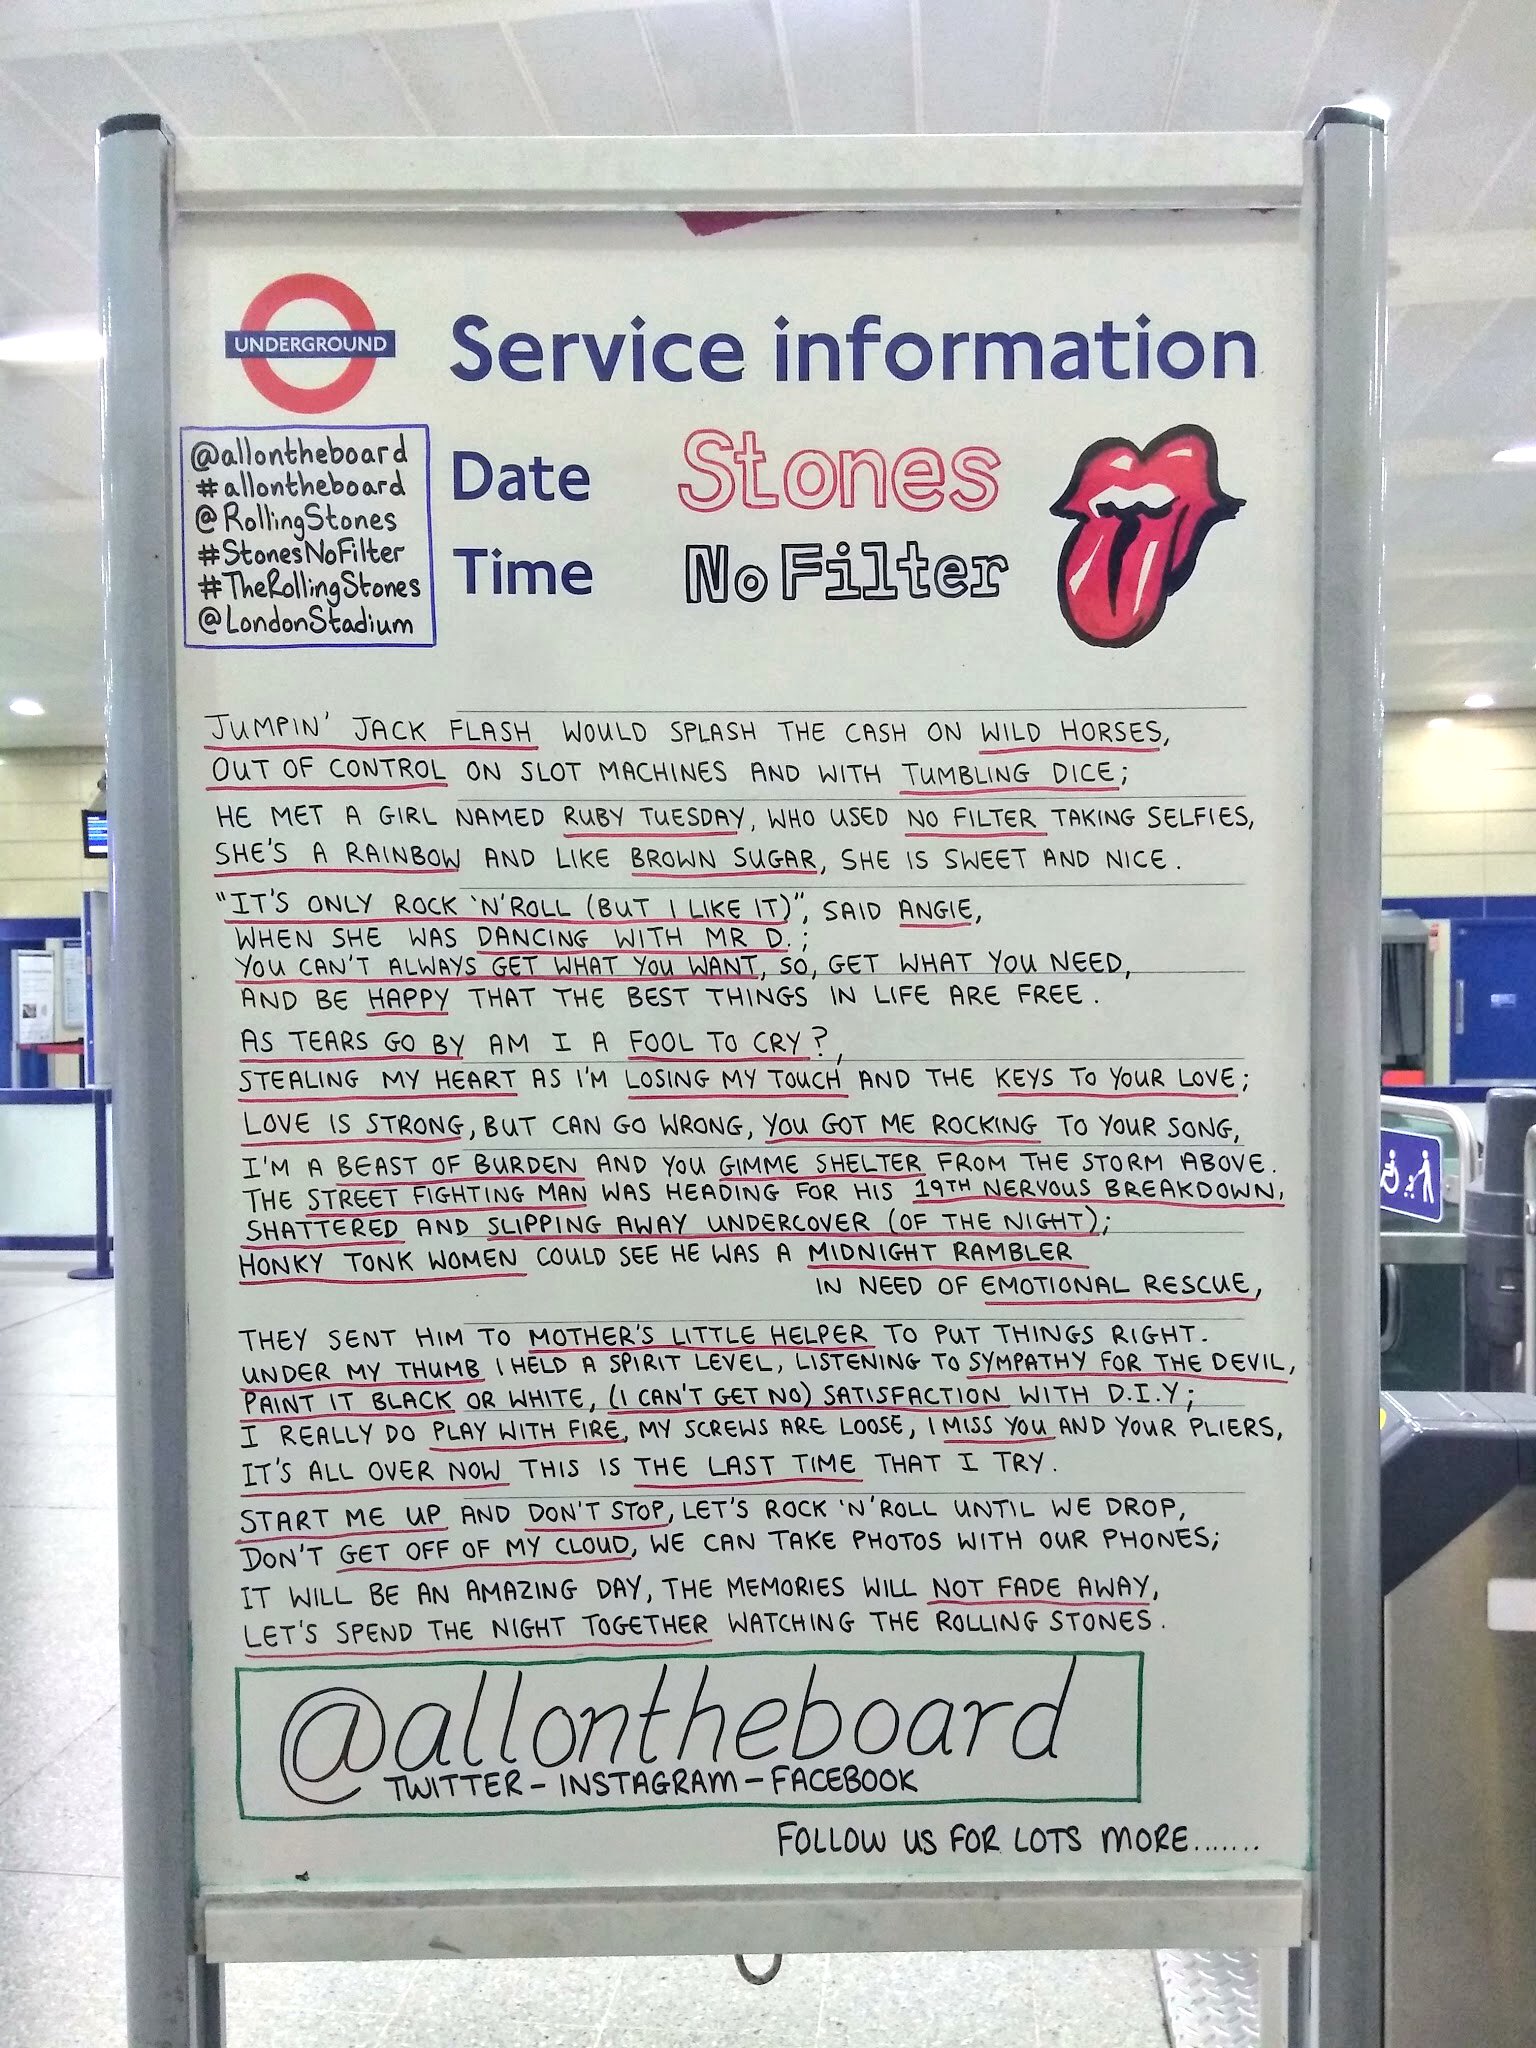 UNDERGROUND
Service information
@allontheboard
#allontheboard
@RollingStones
#StonesNoFilter
#TheRollingStones
@LondonStadium
Date Stones
Time No Filter
JUMPIN' JACK FLASH WOULD SPLASH THE CASH ON WILD HORSES,
OUT OF CONTROL ON SLOT MACHINES AND WITH TUMBLING DICE;
HE MET A GIRL NAMED RUBY TUESDAY, WHO USED NO FILTER TAKING SELFIES,
SHE'S A RAINBOW AND LIKE BROWN SUGAR, SHE IS SWEET AND NICE.
"IT'S ONLY ROCK 'N' ROLL (BUT I LIKE IT)", SAID ANGIE,
WHEN SHE WAS DANCING WITH MR D.;
YOU CAN'T ALWAYS GET WHAT YOU WANT, SO, GET WHAT YOU NEED,
AND BE HAPPY THAT THE BEST THINGS IN LIFE ARE FREE.
AS TEARS GO BY AM I A FOOL TO CRY?,
STEALING MY HEART AS I'M LOSING MY TOUCH AND THE KEYS TO YOUR LOVE;
LOVE IS STRONG, BUT CAN GO WRONG, YOU GOT ME ROCKING TO YOUR SONG,
I'M A BEAST OF BURDEN AND YOU GIMME SHELTER FROM THE STORM ABOVE.
THE STREET FIGHTING MAN WAS HEADING FOR HIS 19TH NERVOUS BREAKDOWN,
SHATTERED AND SLIPPING AWAY UNDERCOVER (OF THE NIGHT);
HONKY TONK WOMEN COULD SEE HE WAS A MIDNIGHT RAMBLER
IN NEED OF EMOTIONAL RESCUE,
THEY SENT HIM TO MOTHER'S LITTLE HELPER TO PUT THINGS RIGHT.
UNDER MY THUMB I HELD A SPIRIT LEVEL, LISTENING TO SYMPATHY FOR THE DEVIL,
PAINT IT BLACK OR WHITE, (I CAN'T GET NO) SATISFACTION WITH D.I.Y;
I REALLY DO PLAY WITH FIRE, MY SCREWS ARE LOOSE, I MISS YOU AND YOUR PLIERS,
IT'S ALL OVER NOW THIS IS THE LAST TIME THAT I TRY.
START ME UP AND DON'T STOP, LET'S ROCK 'N' ROLL UNTIL WE DROP,
DON'T GET OFF OF MY CLOUD, WE CAN TAKE PHOTOS WITH OUR PHONES;
IT WILL BE AN AMAZING DAY, THE MEMORIES WILL NOT FADE AWAY,
LET'S SPEND THE NIGHT TOGETHER WATCHING THE ROLLING STONES.
@allontheboard
TWITTER - INSTAGRAM - FACEBOOK
FOLLOW US FOR LOTS MORE.......